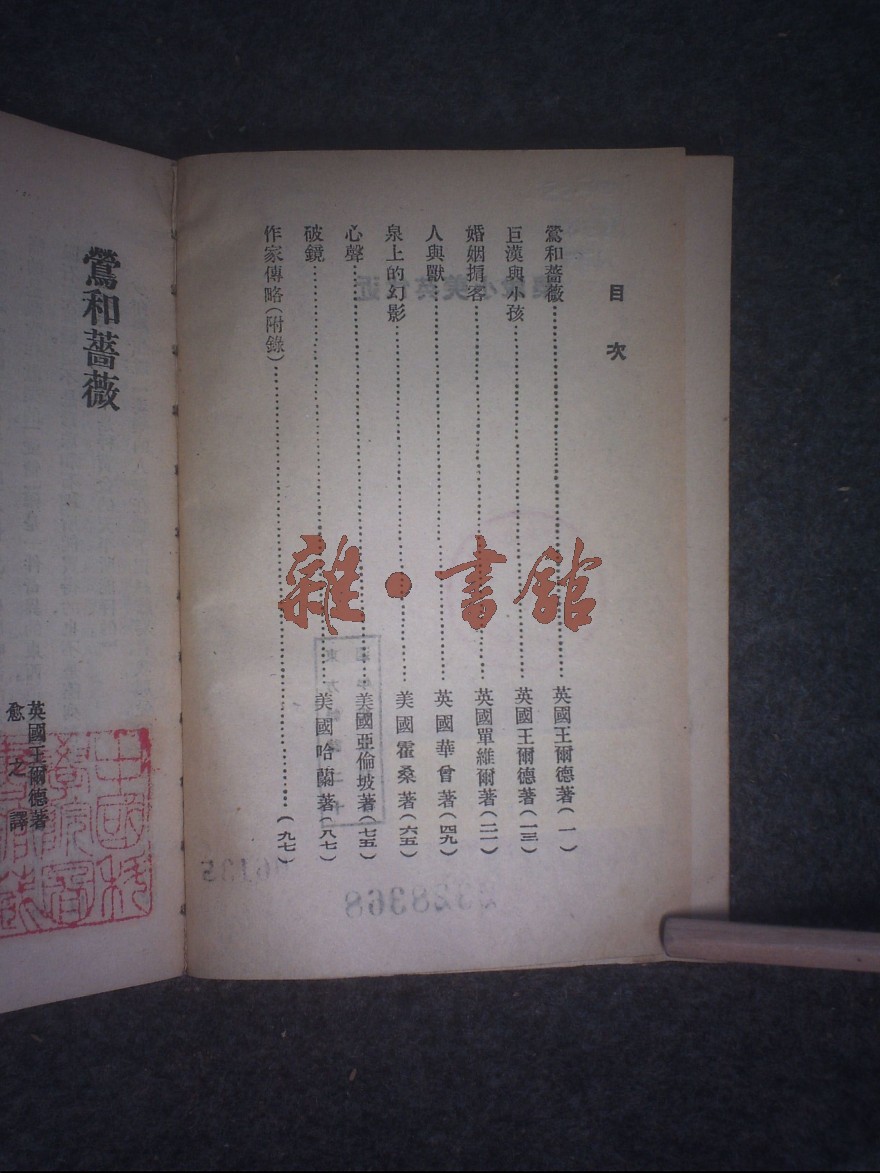 目次
鶯和薔薇……英國王爾德著(一)
巨漢與小孩……英國王爾德著(一三)
婚姻掮客……英國單維爾著(二一)
人與獸……英國華曾著(四九)
泉上的幻影……美國霍桑著(六五)
心聲……美國亞倫坡著(七五)
破鏡……美國哈蘭著(八七)
作家傳略(附錄)……(九七)
鶯和薔薇
英國王爾德著
愈之譯
雜·書館
中國科
學院圖
書館藏
2328368